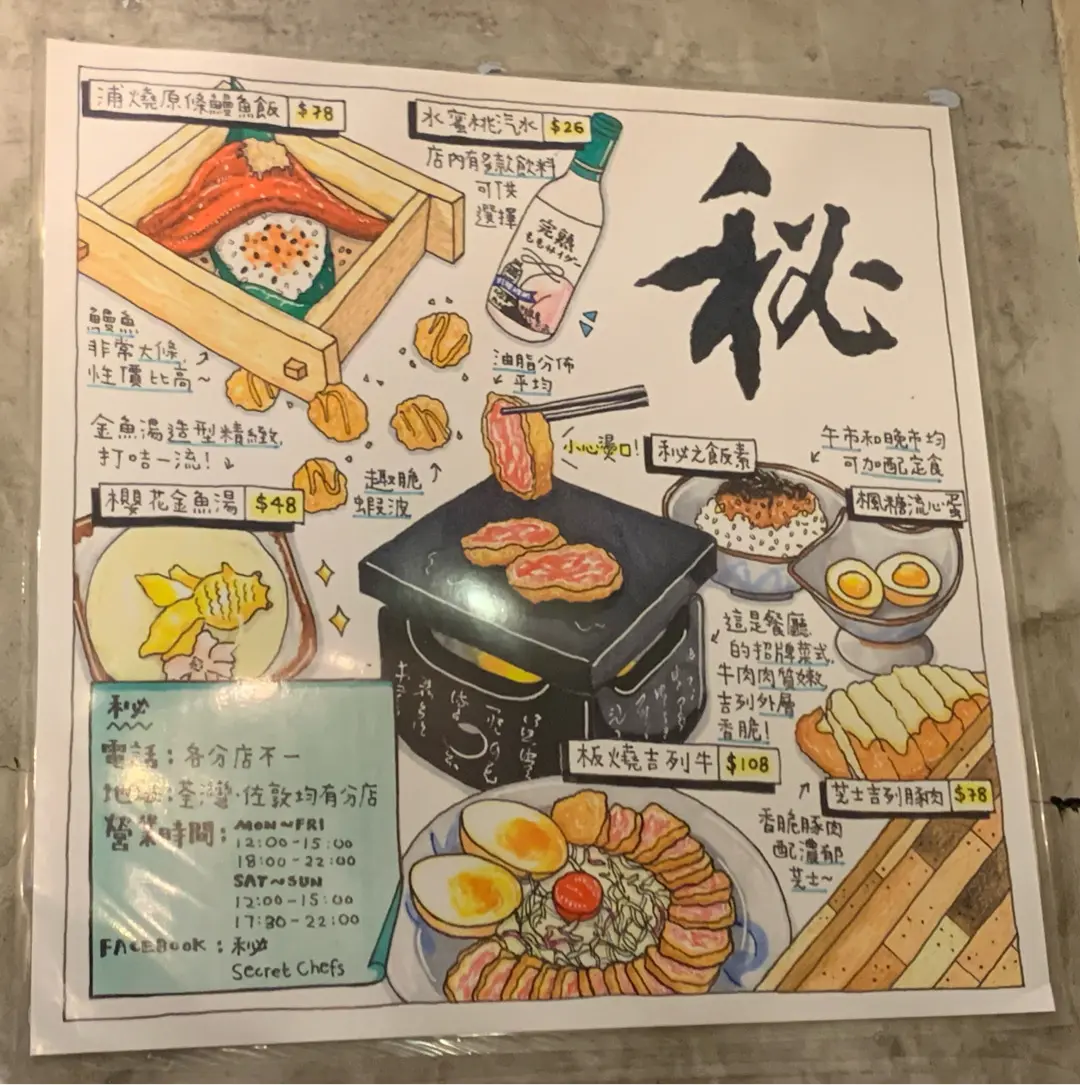 浦燒原條鰻魚飯 $78
水蜜桃汽水 $26
店內有多款飲料
可供
選擇
完熟
ももサイダー
秘
鰻魚
非常大條,
性價比高~
油脂分佈
平均
小心燙口!
金魚湯造型精緻,
打咭一流!
趣脆
蝦波
櫻花金魚湯 $48
秘之飯素
午市和晚市均
可加配定食
楓糖流心蛋
這是餐廳
的招牌菜式,
牛肉肉質嫩
吉列外層
香脆!
板燒吉列牛 $108
芝士吉列豚肉 $78
香脆豚肉
配濃郁
芝士~
秘
電話:各分店不一
地址:荃灣·佐敦均有分店
營業時間:MON~FRI
12:00-15:00
18:00-22:00
SAT~SUN
12:00-15:00
17:30-22:00
FACEBOOK:秘
Secret Chefs